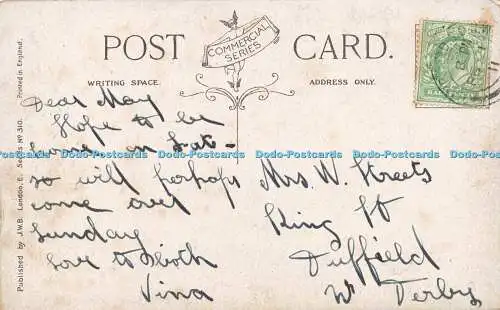 POST CARD.
COMMERCIAL SERIES
WRITING SPACE.
ADDRESS ONLY.
Printed in England.
Published by J.W.B. London, E. Series No 310.
Dear May
Hope to be
home on Sat-
so will perhaps
come over
Sunday
love to both
Vina
Mrs. W. Streets
King St
Duffield
Nr Derby
Dodo-Postcards Dodo-Postcards Dodo-Postcards Dodo-Postcards Dodo-Postcards